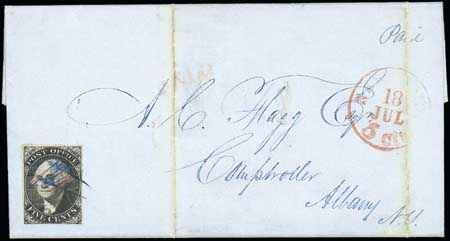 Paid
18
JUL
5 cts
A. C. Flagg Esqr
Comptroller
Albany
N.Y.
POST OFFICE
FIVE CENTS